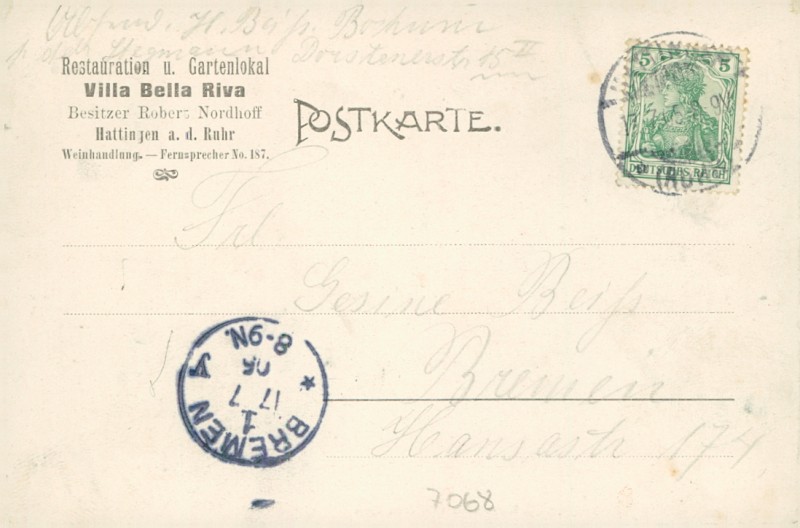 Absend. H. Beiß. Bochum
Dorstenerstr. 15 II
Restauration u. Gartenlokal
Villa Bella Riva
Besitzer Robert Nordhoff
Hattingen a. d. Ruhr
Weinhandlung. — Fernsprecher No. 187.
POSTKARTE.
5 5
DEUTSCHES REICH
Frl
Gesine Beiß
Bremen
Hansastr 174
BREMEN 1
17 7
06
8-9N.
7068